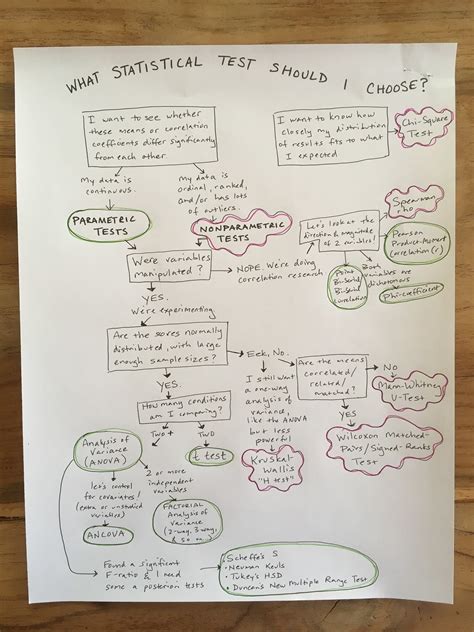 WHAT STATISTICAL TEST SHOULD I CHOOSE?
I want to see whether
these means or correlation
coefficients differ significantly
from each other.
I want to know how
closely my distribution
of results fits to what
I expected
Chi-Square
Test
My data is
continuous.
My data is
ordinal, ranked,
and/or has lots
of outliers.
PARAMETRIC
TESTS
NONPARAMETRIC
TESTS
Let's look at the
direction & magnitude
of 2 variables!
Spearman
rho
Pearson
Product-Moment
Correlation (r)
Were variables
manipulated?
NOPE. We're doing
correlation research
Point
Bi-Serial
Bi-Serial
Correlation
Both
variables are
dichotomous
Phi-coefficient
YES.
We're experimenting
Are the scores normally
distributed, with large
enough sample sizes?
Eek, No.
I still want
a one-way
analysis of
variance,
like the ANOVA
but less
powerful
Kruskal-
Wallis
"H test"
Are the means
correlated/
related/
matched?
NO
Mann-Whitney
U-Test
YES
Wilcoxon Matched-
Pairs/Signed-Ranks
Test
YES.
How many conditions
am I comparing?
TWO+
TWO
t test
Analysis of
Variance
(ANOVA)
let's control
for covariates!
(extra or un-studied
variables)
ANCOVA
2 or more
independent
variables
FACTORIAL
Analysis of
Variance
(2-way, 3-way,
& so on..)
Found a significant
F-ratio & I need
some a posteriori tests
• Scheffe's S
• Neuman Keuls
• Tukey's HSD
• Duncan's New Multiple Range Test